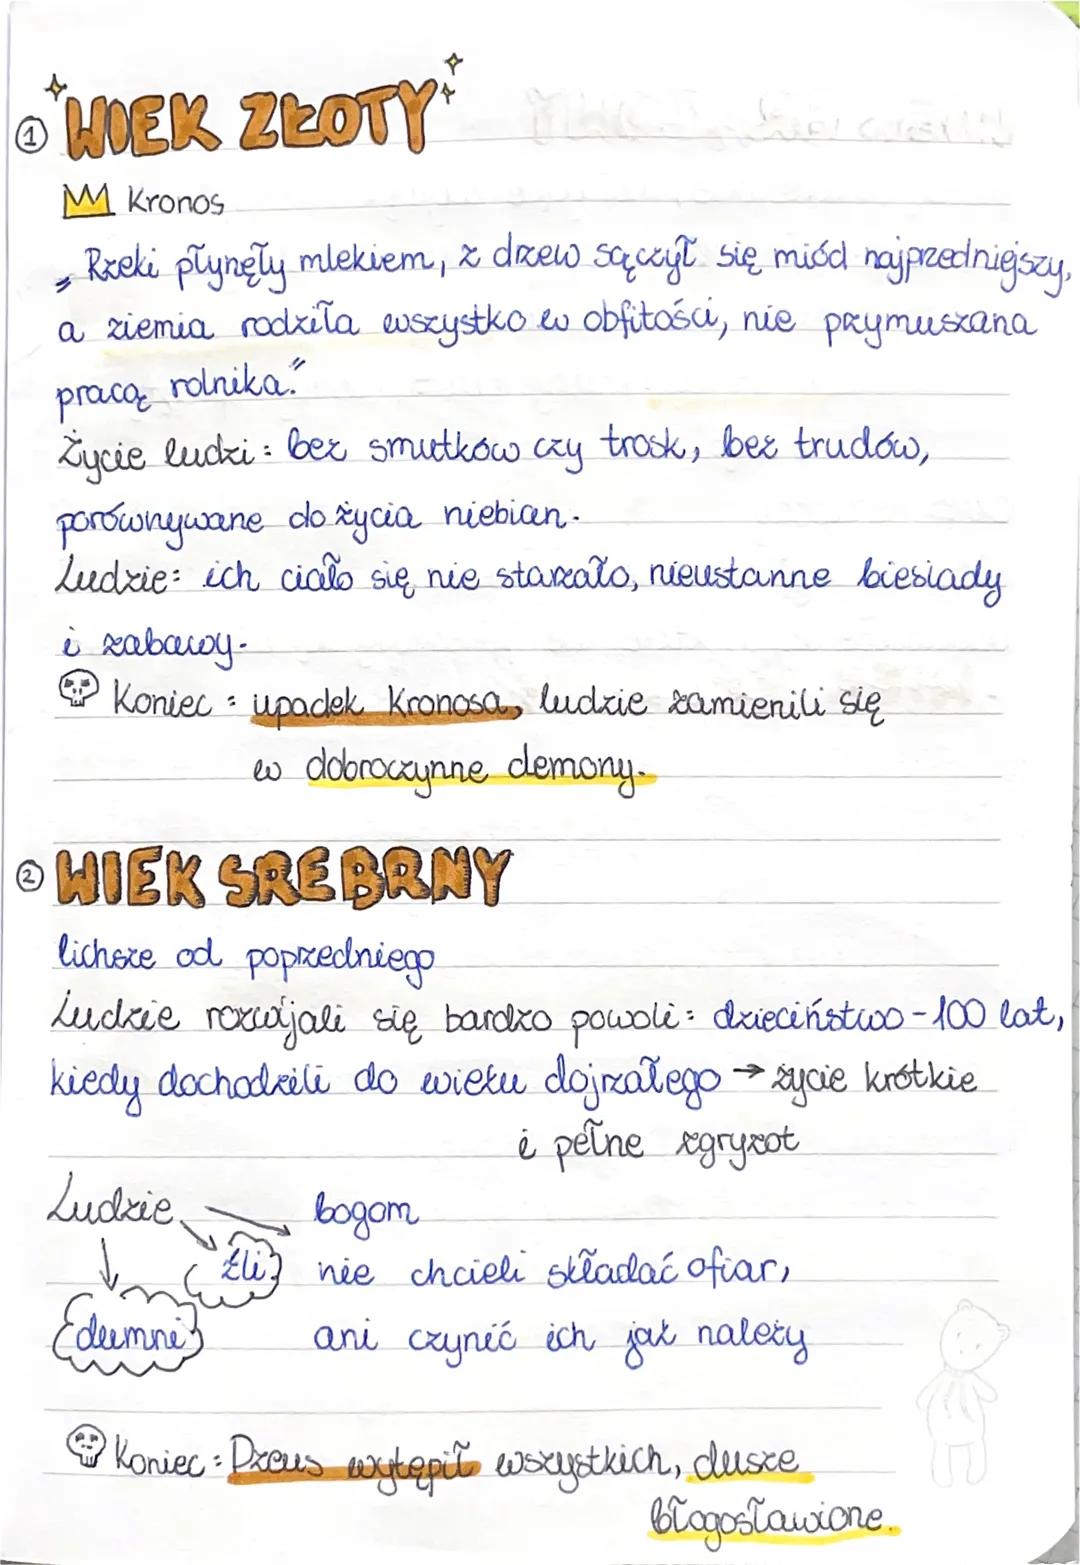 ① WIEK ZŁOTY
Kronos
„Rzeki płynęły mlekiem, z drzew sączył się miód najprzedniejszy,
a ziemia rodziła wszystko w obfitości, nie przymuszana
pracą rolnika."
Życie ludzi: bez smutków czy trosk, bez trudów,
porównywane do życia niebian.
Ludzie: ich ciało się nie starzało, nieustanne biesiady
i zabawy.
Koniec: upadek Kronosa, ludzie zamienili się
w dobroczynne demony.
② WIEK SREBRNY
lichsze od poprzedniego
Ludzie rozwijali się bardzo powoli: dzieciństwo - 100 lat,
kiedy dochodzili do wieku dojrzałego → życie krótkie
i pełne zgryzot
Ludzie bogom
źli nie chcieli składać ofiar,
dumni ani czynić ich jak należy
Koniec: Dzeus wytępił wszystkich, dusze
błogosławione.